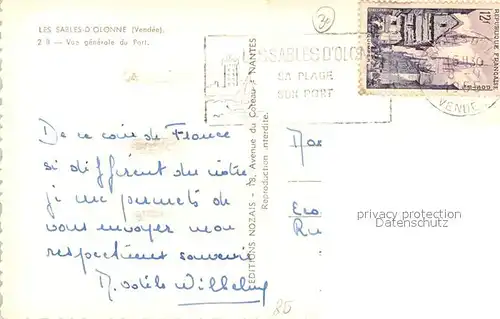 LES SABLES-D'OLONNE (Vendée).
2 B — Vue générale du Port.
SABLES D'OLON
SA PLAGE
SON PORT
12F
REPUBLIQUE FRANÇAISE
VENDÉE
De ce coin de France
si différent du nôtre
je me permets de
vous envoyer mon
respectueux souvenir
EDITIONS NOZAIS - 18, Avenue du Coteau - NANTES
Reproduction interdite.
privacy protection
Datenschutz
85